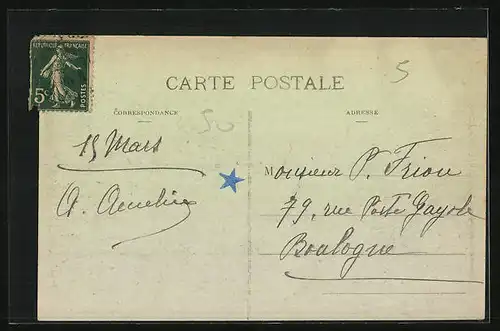 REPUBLIQUE FRANÇAISE
5c POSTES
CARTE POSTALE
5
CORRESPONDANCE
ADRESSE
50
15 Mars
A.
Monsieur P. Frion
79, rue Porte Gayole
Boulogne